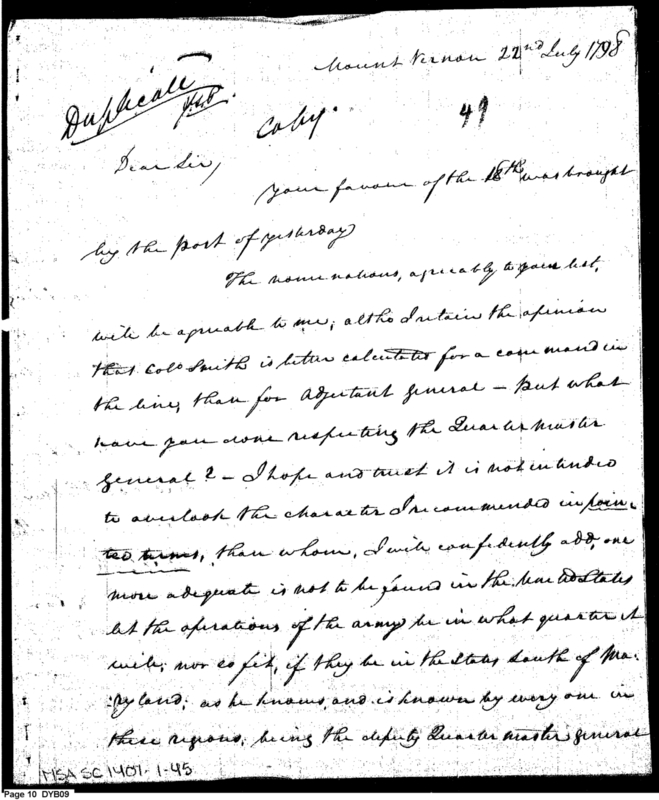 Mount Vernon 22nd July 1798
Duplicate
Copy.
49
Dear Sir,
Your favour of the 18th was brought
by the post of yesterday
The nominations, agreably to your list,
will be agreable to me; altho I retain the opinion
that Colo Smith is better calculated for a command in
the line, than for Adjutant General – But what
have you done respecting the Quarter master
General? – I hope and trust it is not intended
to overlook the character I recommended in poin-
ted terms, than whom, I will confidently add, one
more adequate is not to be found in the United States
let the operations of the army be in what quarter it
will; nor so fit, if they be in the States South of Ma-
ryland; as he knows, and is known by every one in
these regions; being the deputy Quarter master general
MSA SC 1407-1-45
Page 10 DYB09